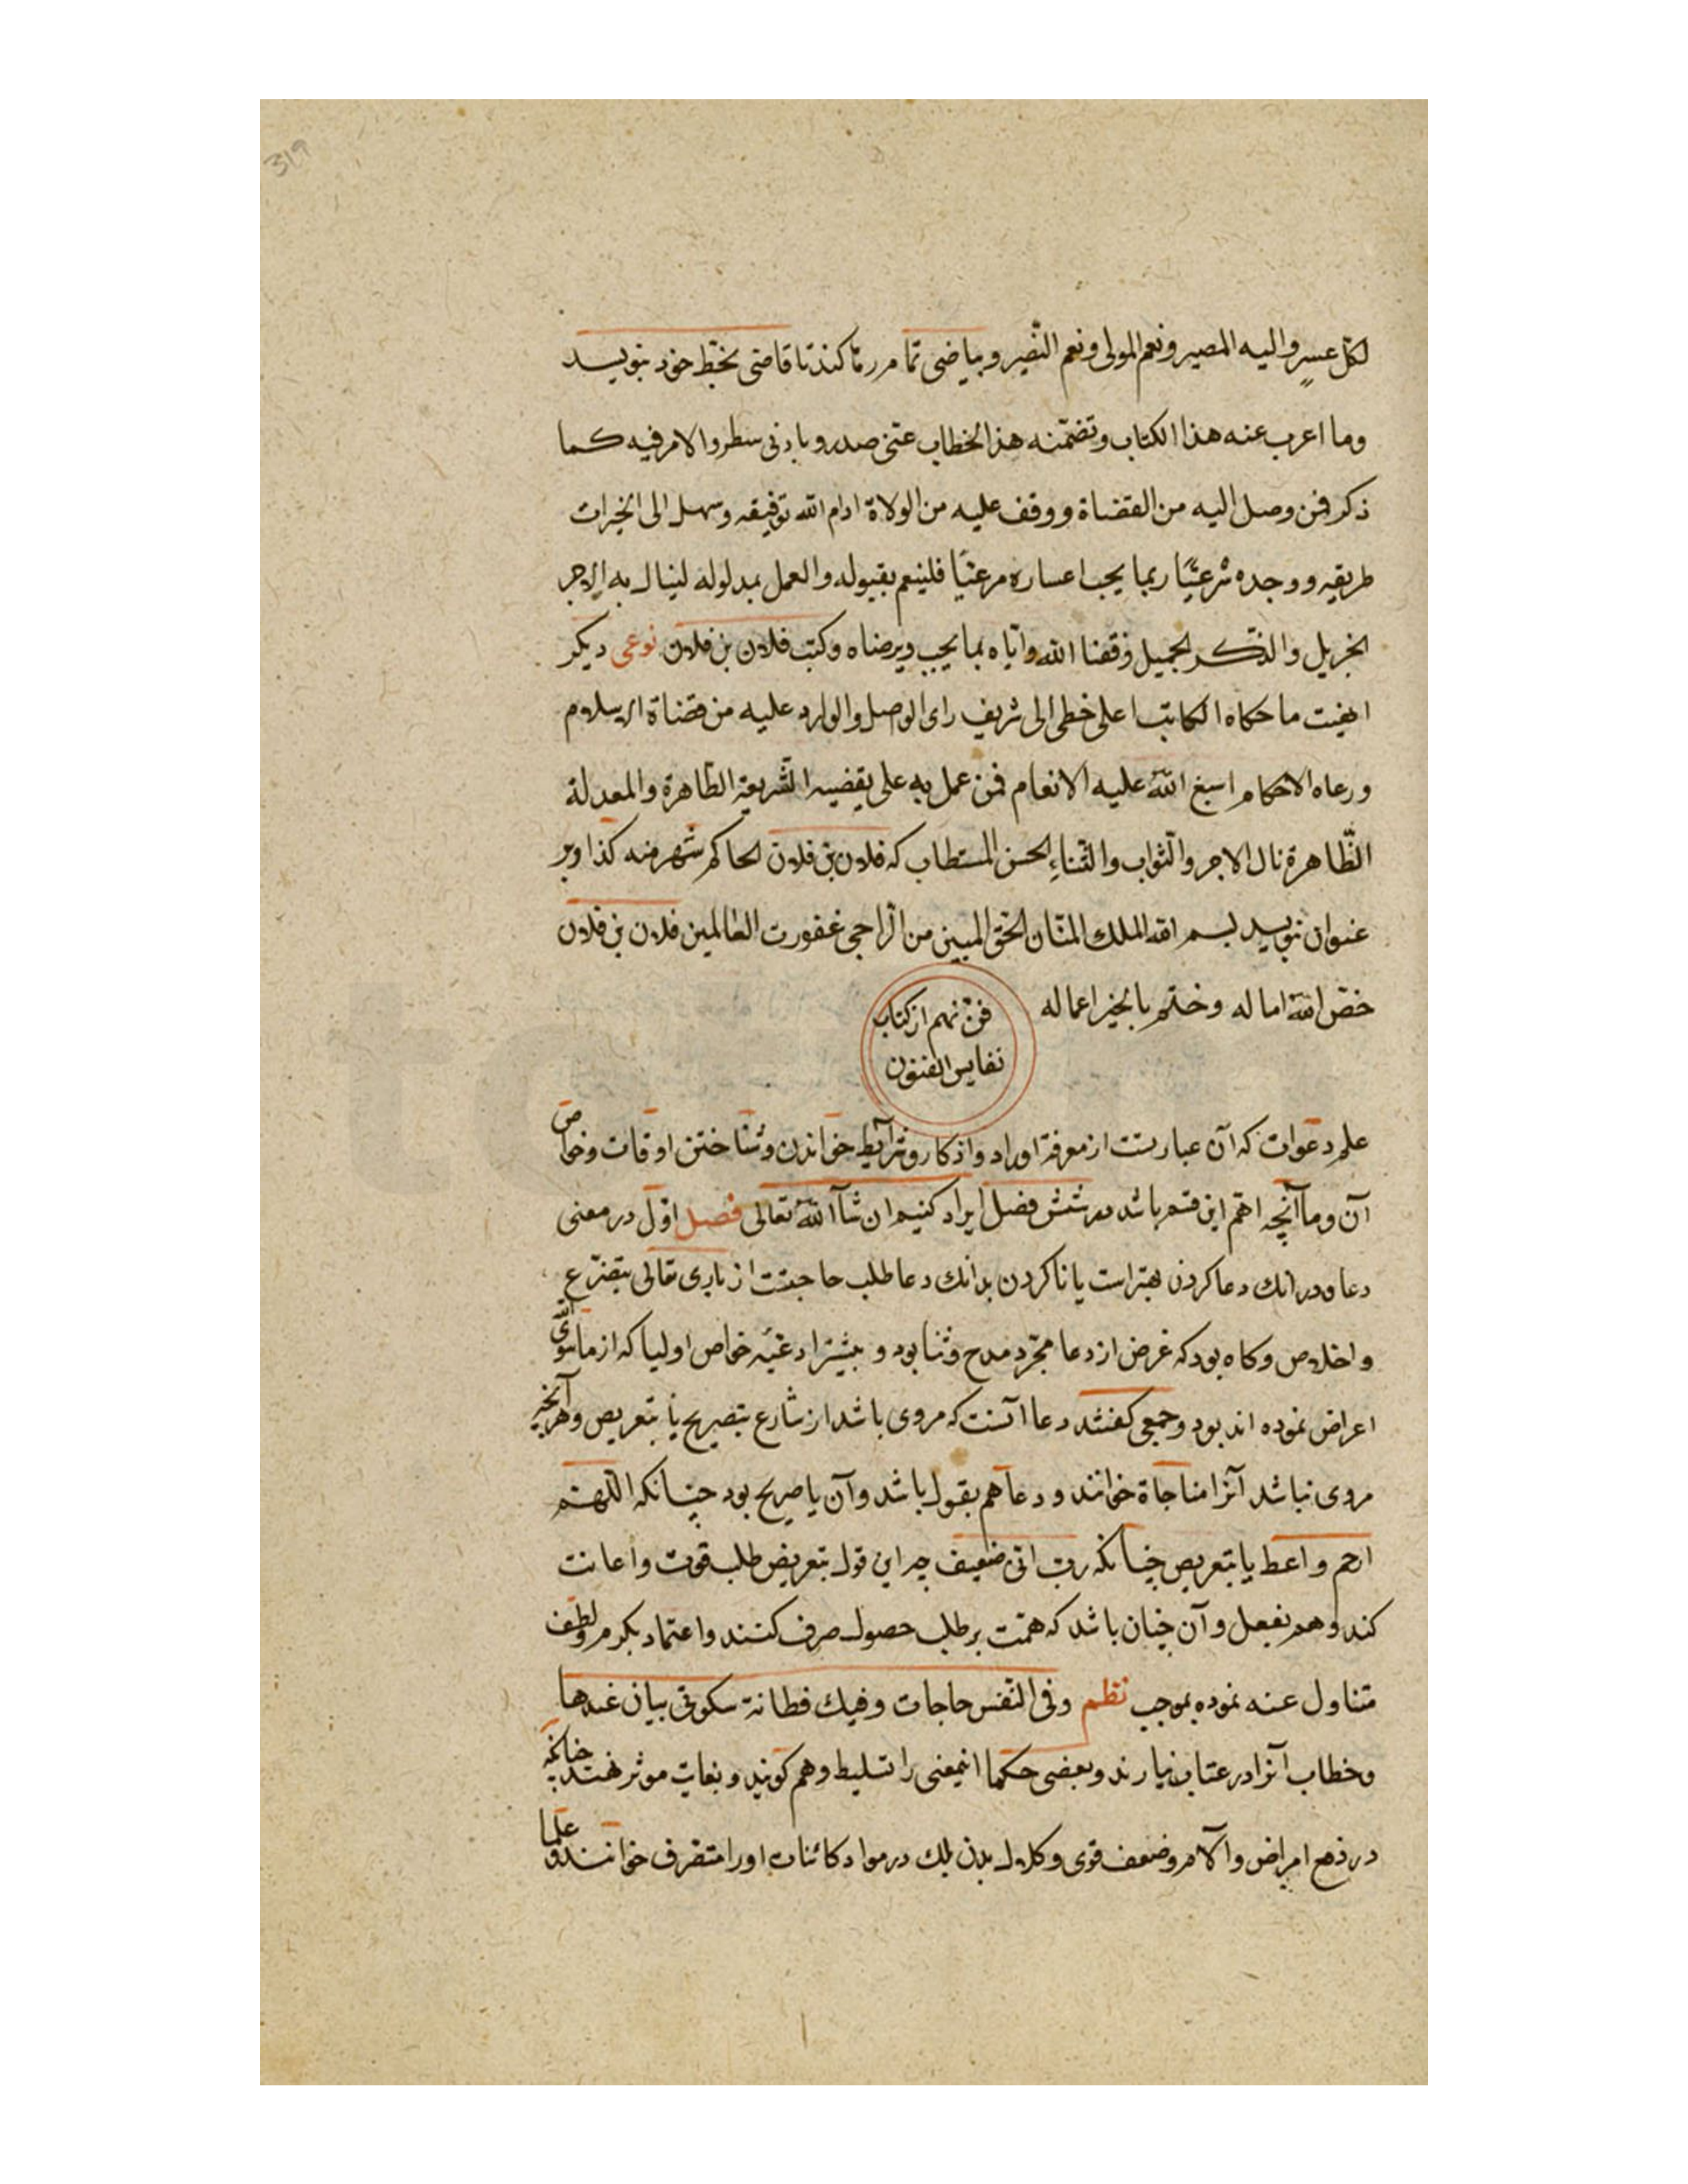 319
لكل عسير واليه المصير ونعم المولى ونعم النصير وبياضى تمامررها كند تا قاضى بخط خود بنويسد
وما اعرب عنه هذا الكتاب وتضمّنه هذا الخطاب عنى صدر وباذنى سطر والامر فيه كما
ذكر فمن وصل اليه من القضاة ووقف عليه من الولاة ادام الله توفيقه وسهل الى الخيرات
طريقه ووجده شرعيّا ربما يجب اعساره مرعيّا فلينعم بقبوله والعمل بمدلوله لينال به الاجر
الجزيل والذّكر الجميل وفقنا الله وايّاه بما يحب ويرضاه وكتب فلان بن فلان نوعى ديكر
انهيت ما حكاه الكاتب اعلى خطى الى شريف راى الوصل والوارد عليه من قضاة الاسلام
ورعاه الاحكام اسبغ الله عليه الانعام فمن عمل به على يقضيه الشريعة الطّاهرة والمعدلة
الظّاهرة نال الاجر والثواب والثناء الحسن المستطاب كه فلان بن فلان الحاكم شهر منه كذا وبر
عنوان بنويسد بسم الله الملك المنّان الحق المبين من الرّاجى غفورت العالمين فلان بن فلان
خصّ الله اماله وختم بالخير اعماله
فنّ نهم از كتاب
نفايس الفنون
علم دعوات كه آن عبارتست از معرفة اوراد واذكار وشرايط خواندن وشناختن اوقات وخواص
آن وما آنچه اهمّ اين قسم باشد در شش فصل ايراد كنيم ان شآ الله تعالى فصل اوّل در معنى
دعا ودر انك دعا كردن بهتر است يا ناكردن بدانك دعا طلب حاجتست از بارى تعالى بتضرّع
واخلاص وكاه بود كه غرض از دعا مجرّد مدح وثنا بود و بيشتر ادعيّه خواص اوليا كه از ما سوى الله
اعراض نموده اند بود وجمعى كفتند دعا آنست كه مروى باشد از شارع بتصريح يا بتعريض وهر آنچه
مروى نباشد آنرا مناجاة خوانند و دعا هم بقول باشد وآن يا صريح بود چنانكه اللّهم
ارحم واعط يا بتعريض چنانكه رب انى ضعيف چه اين قول بتعريض طلب قوت واعانت
كند وهم بفعل وآن چنان باشد كه همّت بر طلب حصول صرف كنند واعتماد بكرم ولطف
متناول عنه نموده بموجب نظم وفى النّفس حاجات وفيك فطانة سكوتى بيان عندها
وخطاب آنرا در عتاب نيارند وبعضى حكما اينمعنى را تسليط وهم كويند وبغايت موثر نهند چنانكه
در دفع امراض وآلام وضعف قوى وكلال بدن بلك در مواد كائنات او را متصرف خوانند وعلما